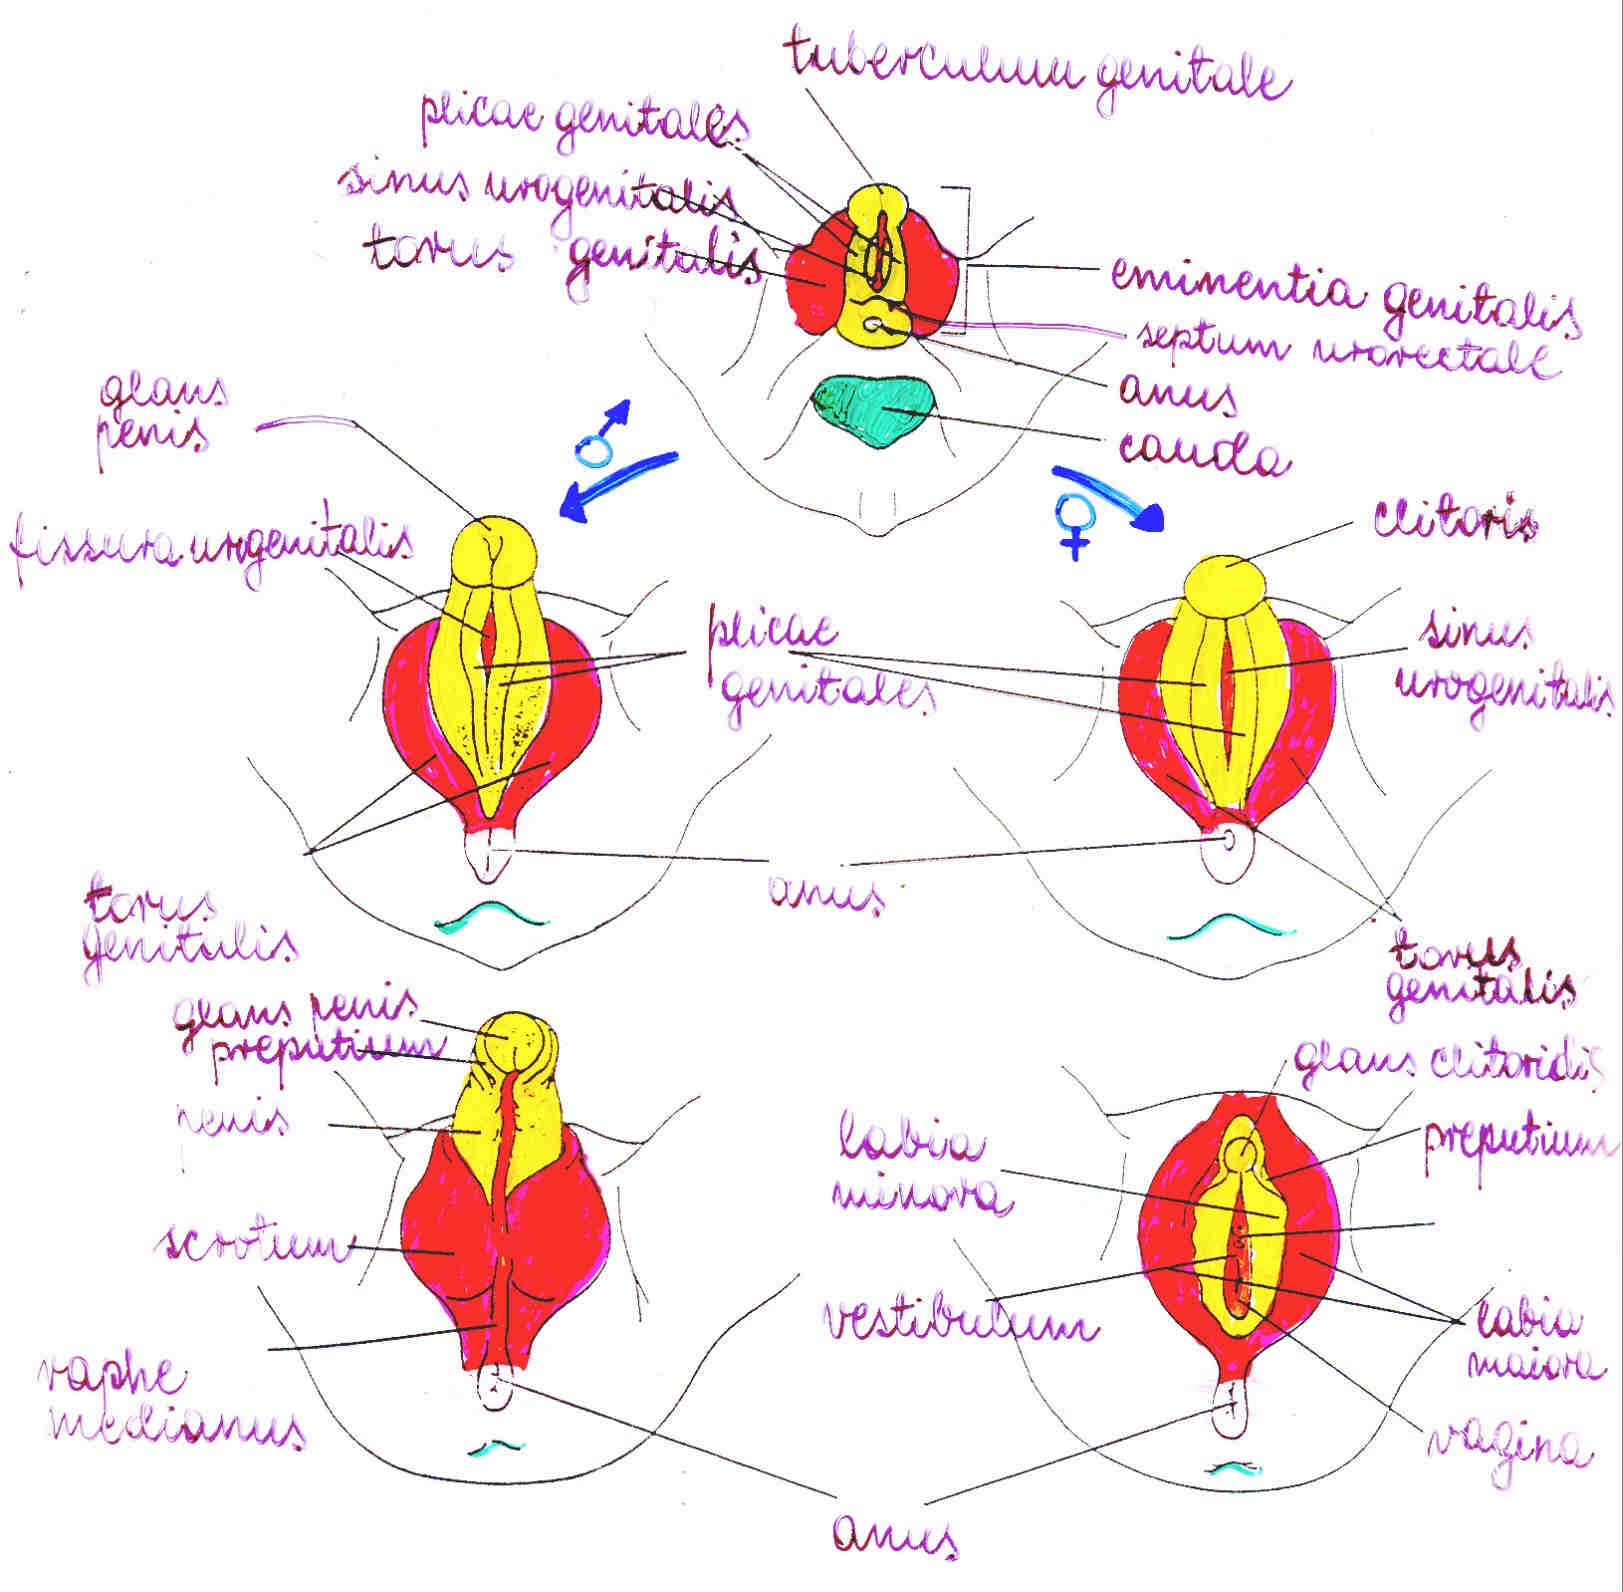 tuberculum genitale
plicae genitales
sinus urogenitalis
torus genitalis
eminentia genitalis
septum urorectale
anus
cauda
glans
penis
fissura urogenitalis
clitoris
plicae
genitales
sinus
urogenitalis
anus
torus
genitalis
torus
genitalis
glans penis
preputium
penis
scrotum
raphe
medianus
glans clitoridis
preputium
labia
minora
vestibulum
labia
maiora
vagina
anus